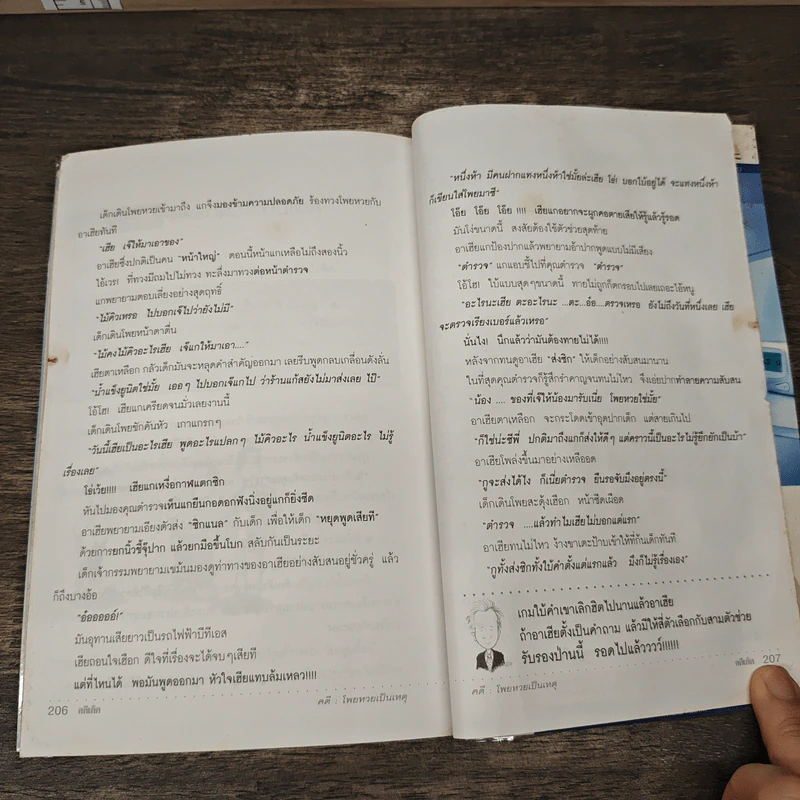 เด็กเดินโพยหวยเข้ามาถึง แกจึงมองข้ามความปลอดภัย ร้องทวงโพยหวยกับ
อาเฮียทันที
"เฮีย เจ๊ให้มาเอาของ"
อาเฮียซึ่งปกติเป็นคน "หน้าใหญ่" ตอนนี้หน้าแกเหลือไม่ถึงสองนิ้ว
ไอ้เวร! ที่ทวงมีถมไปไม่ทวง ทะลึ่งมาทวงต่อหน้าตำรวจ
แกพยายามตอบเลี่ยงอย่างสุดฤทธิ์
"ไม้คิวเหรอ ไปบอกเจ๊ไปว่ายังไม่มี"
เด็กเดินโพยหน้าตาตื่น
"ไม้คงไม้คิวอะไรเฮีย เจ๊แกให้มาเอา...."
เฮียตาเหลือก กลัวเด็กมันจะหลุดคำสำคัญออกมา เลยรีบพูดกลบเกลื่อนดังลั่น
"น้ำแข็งยูนิตใช่มั้ย เออๆ ไปบอกเจ๊แกไป ว่าร้านแก้สยังไม่มาส่งเลย ไป๊"
โอ้โฮ! เฮียแกเครียดจนมั่วเลยงานนี้
เด็กเดินโพยชักคันหัว เกาแกรกๆ
"วันนี้เฮียเป็นอะไรเฮีย พูดอะไรแปลกๆ ไม้คิวอะไร น้ำแข็งยูนิตอะไร ไม่รู้
เรื่องเลย"
โธ่เว้ย!!!! เฮียแกเหงื่อกาฬแตกซิก
หันไปมองคุณตำรวจเห็นแกยืนกอดอกฟังนิ่งอยู่แกก็ยิ่งซีด
อาเฮียพยายามเอียงตัวส่ง "ซิกแนล" กับเด็ก เพื่อให้เด็ก "หยุดพูดเสียที"
ด้วยการยกนิ้วชี้จุ๊ปาก แล้วยกมือขึ้นโบก สลับกันเป็นระยะ
เด็กเจ้ากรรมพยายามเขม้นมองดูท่าทางของอาเฮียอย่างสับสนอยู่ชั่วครู่ แล้ว
ก็ถึงบางอ้อ
"อ๋ออออออ์!"
มันอุทานเสียยาวเป็นรถไฟฟ้าบีทีเอส
เฮียถอนใจเฮือก ดีใจที่เรื่องจะได้จบๆเสียที
แต่ที่ไหนได้ พอมันพูดออกมา หัวใจเฮียแทบล้มเหลว!!!!
206
คดี : โพยหวยเป็นเหตุ
"หนึ่งห้า มีคนฝากแทงหนึ่งห้าใช่มั้ยล่ะเฮีย โธ่! บอกใบ้อยู่ได้ จะแทงหนึ่งห้า
ก็เขียนใส่โพยมาซี"
โอ๊ย โอ๊ย โอ๊ย !!!! เฮียแกอยากจะผูกคอตายเสียให้รู้แล้วรู้รอด
มันโง่ขนาดนี้ สงสัยต้องใช้ตัวช่วยสุดท้าย
อาเฮียแกป้องปากแล้วพยายามอ้าปากพูดแบบไม่มีเสียง
"ตำรวจ" แกแอบชี้ไปที่คุณตำรวจ "ตำรวจ"
โอ้โฮ! ใบ้แบบสุดๆขนาดนี้ ทายไม่ถูกก็ตกรอบไปเลยเถอะไอ้หนู
"อะไรนะเฮีย ตะอะไรนะ ...ตะ...อ๋อ...ตรวจเหรอ ยังไม่ถึงวันที่หนึ่งเลย เฮีย
จะตรวจเรียงเบอร์แล้วเหรอ"
นั่นไง! นึกแล้วว่ามันต้องทายไม่ได้!!!!
หลังจากทนดูอาเฮีย "ส่งซิก" ให้เด็กอย่างสับสนมานาน
ในที่สุดคุณตำรวจก็รู้สึกรำคาญจนทนไม่ไหว จึงเอ่ยปากทำลายความสับสน
"น้อง .... ของที่เจ๊ให้น้องมารับเนี่ย โพยหวยใช่มั้ย"
อาเฮียตาเหลือก จะกระโดดเข้าอุดปากเด็ก แต่สายเกินไป
"ก็ใช่น่ะซีพี่ ปกติมาถึงแกก็ส่งให้ดีๆ แต่คราวนี้เป็นอะไรไม่รู้ยึกยักเป็นบ้า"
อาเฮียโพล่งขึ้นมาอย่างเหลืออด
"กูจะส่งได้ไง ก็เนี่ยตำรวจ ยืนรอจับมึงอยู่ตรงนี้"
เด็กเดินโพยสะดุ้งเฮือก หน้าซีดเผือด
"ตำรวจ ....แล้วทำไมเฮียไม่บอกแต่แรก"
อาเฮียทนไม่ไหว ง้างขาเตะป้าบเข้าให้ที่ก้นเด็กทันที
"กูทั้งส่งซิกทั้งใบ้คำตั้งแต่แรกแล้ว มึงก็ไม่รู้เรื่องเอง"
เกมใบ้คำเขาเลิกฮิตไปนานแล้วอาเฮีย
ถ้าอาเฮียตั้งเป็นคำถาม แล้วมีให้สี่ตัวเลือกกับสามตัวช่วย
รับรองป่านนี้ รอดไปแล้ววววว์!!!!!!
คดี : โพยหวยเป็นเหตุ
207